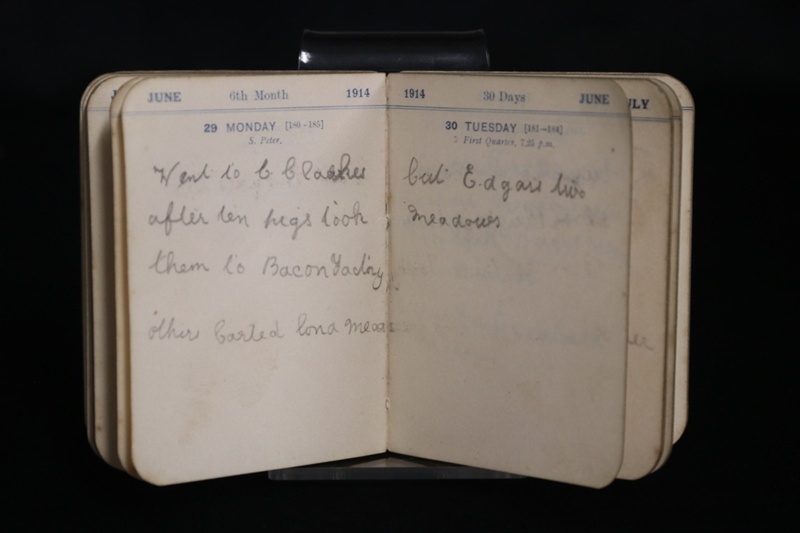 JUNE 6th Month 1914
29 MONDAY [180-185]
S. Peter.
Went to
after ten pigs took
them to Bacon Factory
others Carted long
1914 30 Days JUNE
30 TUESDAY [181-184]
First Quarter, 7.25 p.m.
Cut Edgars two
Meadows
JULY